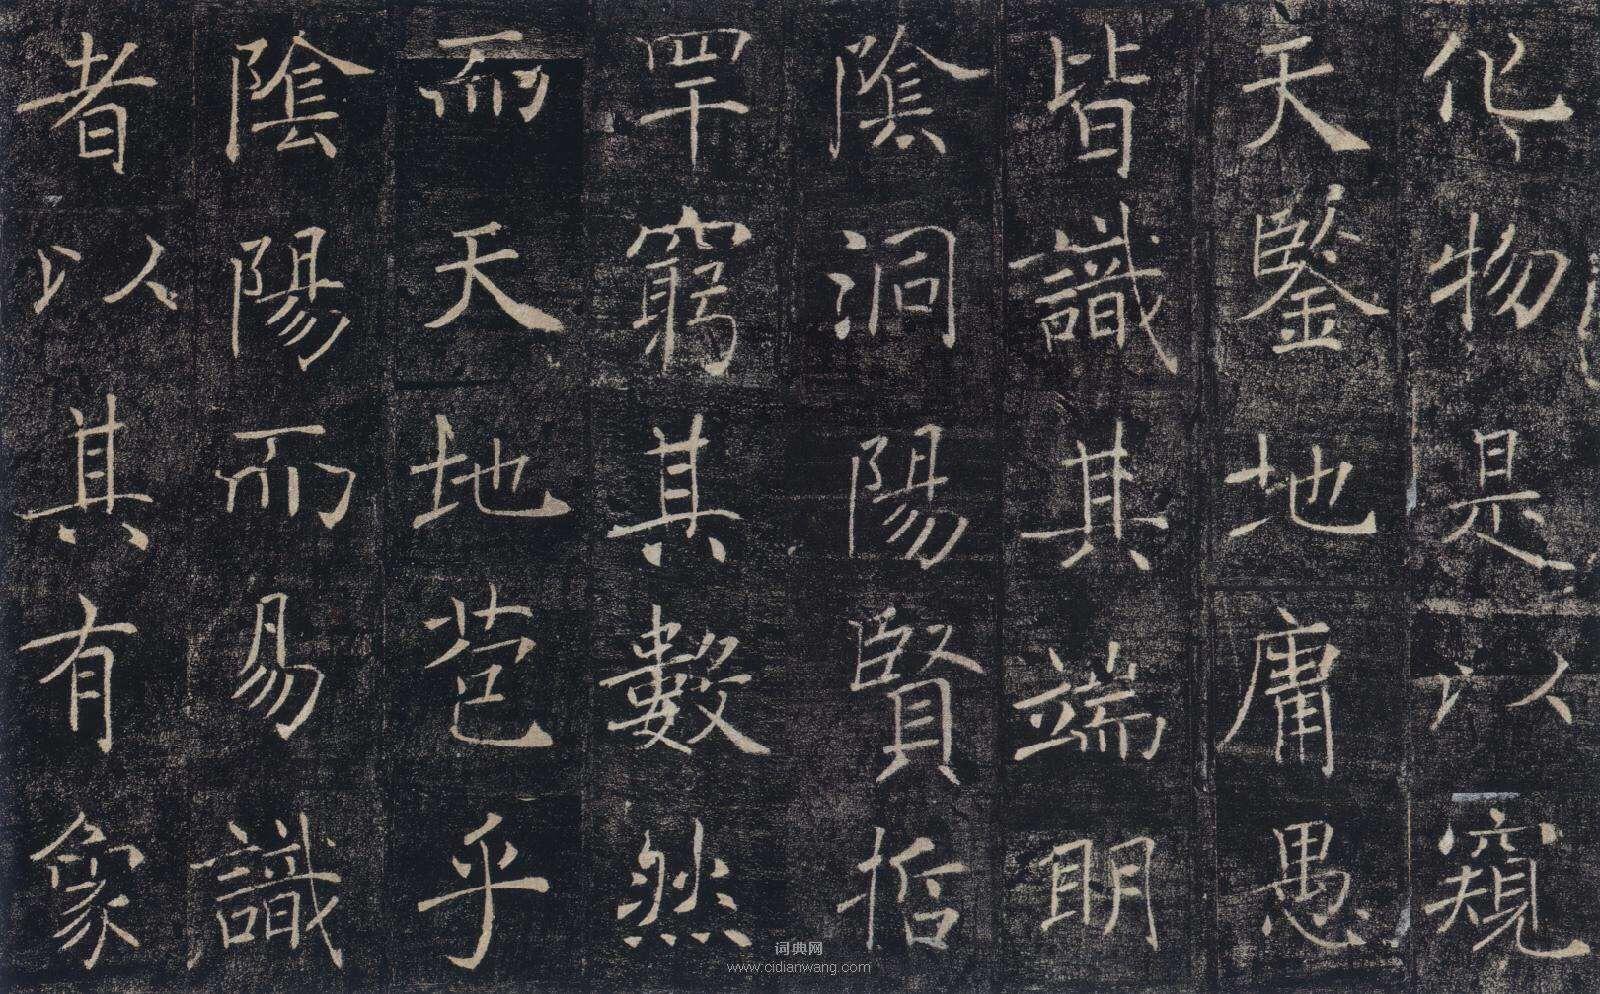 化物是以窺
天鑒地庸愚
皆識其端明
陰洞陽賢哲
罕窮其數然
而天地苞乎
陰陽而易識
者以其有象
词典网
www.cidianwang.com